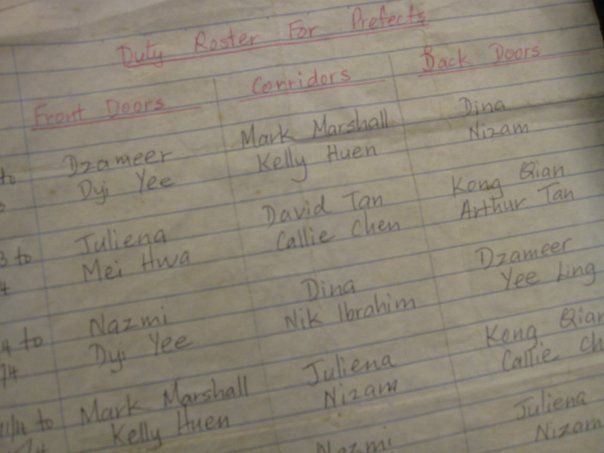 Duty Roster For Prefects
Front Doors Corridors Back Doors
to Dzameer Mark Marshall Dina
Dyji Yee Kelly Huen Nizam
3 to Juliena David Tan Kong Qian
4 Mei Hwa Callie Chen Arthur Tan
4 to Nazmi Dina Dzameer
74 Dyji Yee Nik Ibrahim Yee Ling
to Mark Marshall Juliena Kong Qian
Kelly Huen Nizam Callie Ch
Nazmi Juliena
Nizam